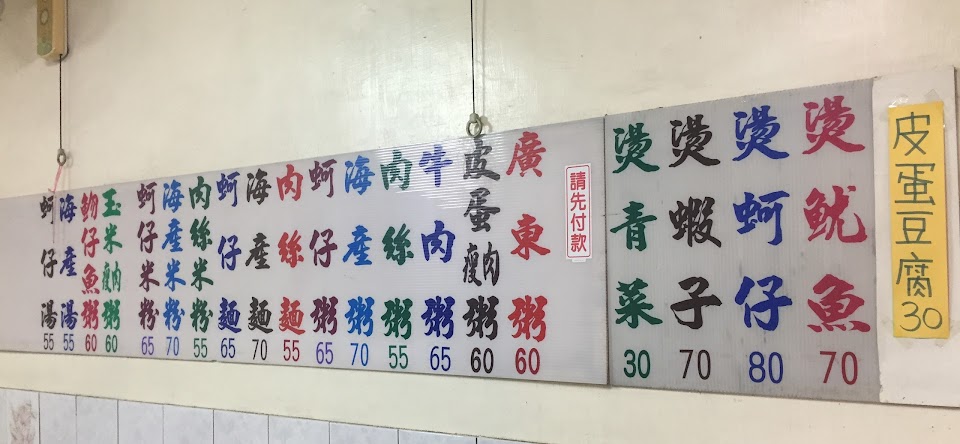 皮蛋豆腐30
燙魷魚70
燙蚵仔80
燙蝦子70
燙青菜30
請先付款
廣東粥60
皮蛋瘦肉粥60
牛肉粥65
肉絲粥55
海產粥70
蚵仔粥65
肉絲麵55
海產麵70
蚵仔麵65
肉絲米粉55
海產米粉70
蚵仔米粉65
玉米瘦肉粥60
魩仔魚粥60
海產湯55
蚵仔湯55